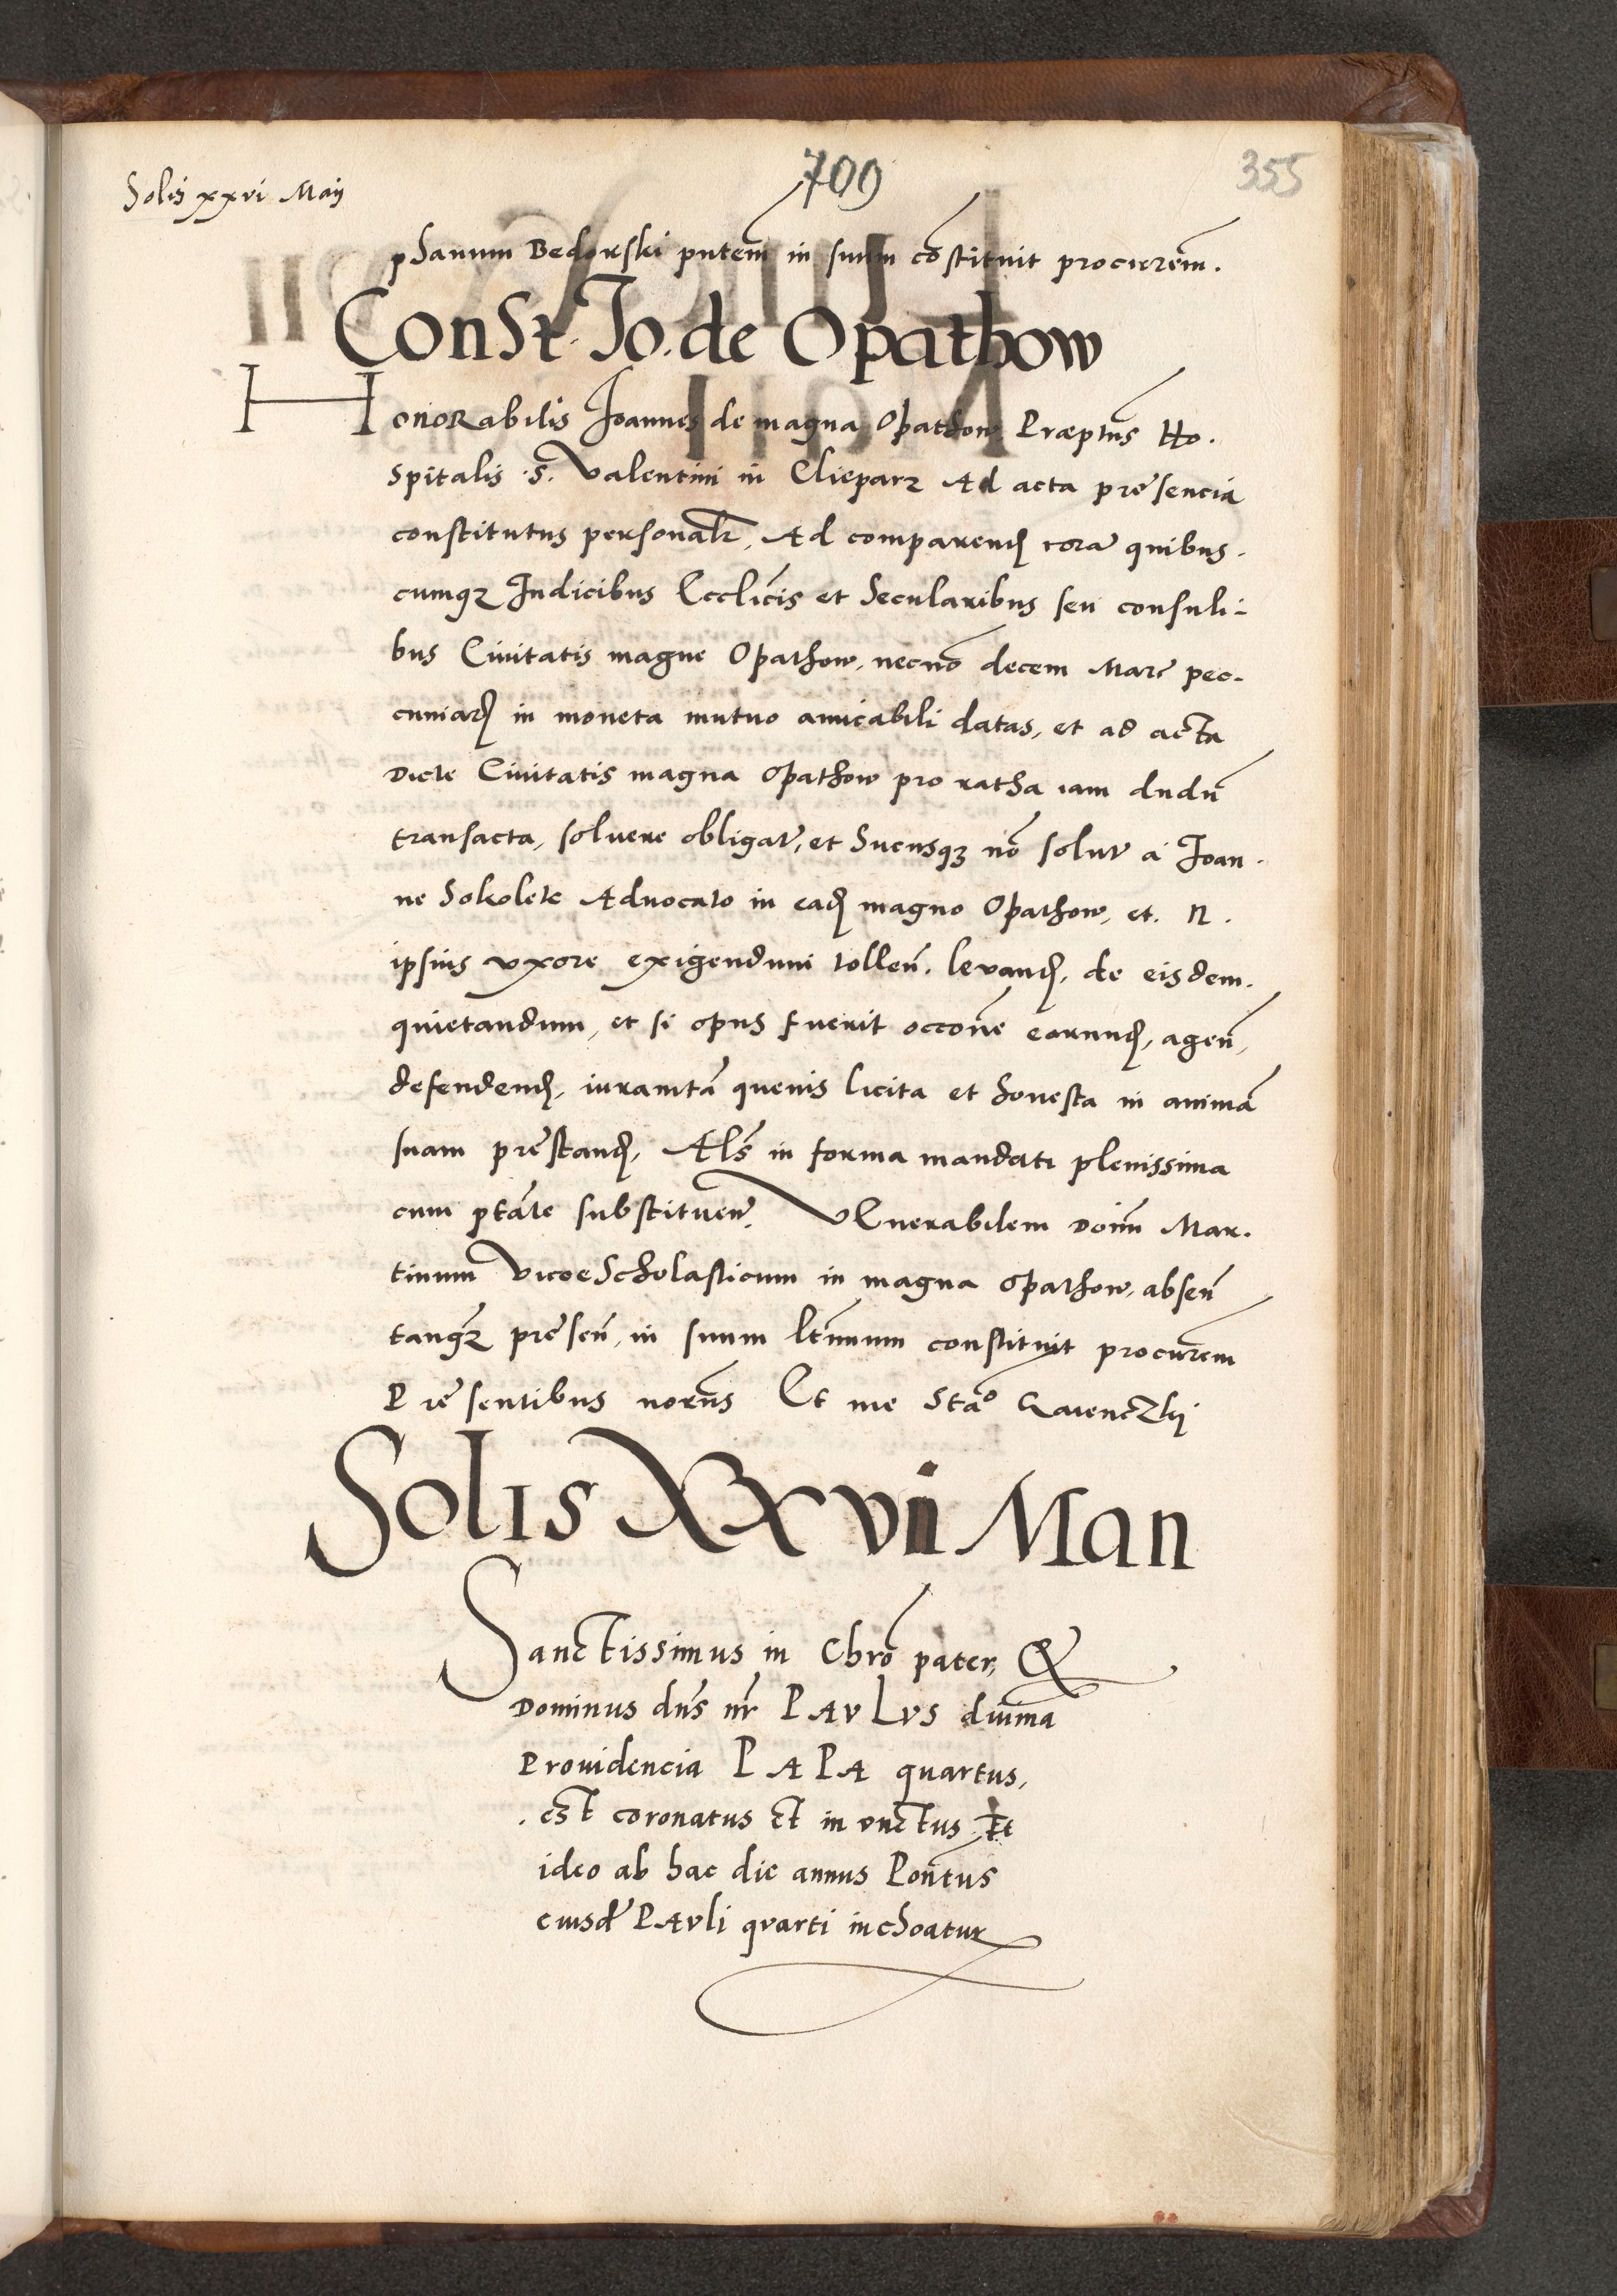 Solis xxvi Maij
709
355
phanum Bedorski pntem in suum cōstituit procurem.
Const. Jo. de Opathow
Honorabilis Joannes de magna Opathow Præptus Ho.
spitalis .S. Valentini in Clieparz Ad acta presencia
constitutus personalr, Ad comparend cora quibus.
cumqz Judicibus Ecclicis et Secularibus seu consuli-
bus Civitatis magne Opathow, necnō decem Marc pec-
cuniard in moneta mutuo amicabili datas, et ad acta
dicte Civitatis magna Opathow pro ratha iam dudū
transacta, solvere obligat, et hucusqz nō solut a Joan.
ne Sokolek Advocato in ead magno Opathow, et. N.
ipsius vxore exigendum tollen. levand, de eisdem.
quietandum, et si opus fuerit occone earund, agen,
defendend, iuramta quevis licita et honesta in animā
suam prestand, Als in forma mandati plenissima
cum ptate substituen. VEnerabilem Donm Mar.
tinum viceScholasticum in magna Opathow, absen
tanqz presen, in suum ltmum constituit procurem
Presentibus norus Et me Stao
Solis XXvi Maii
Sanctissimus in Chro pater, &
Dominus dns nr PAVLVS divina
Providencia PAPA quartus,
.est coronatus et in vnctus Et
ideo ab hac die annus Pontus
eiusd PAvli qvarti inchoatur